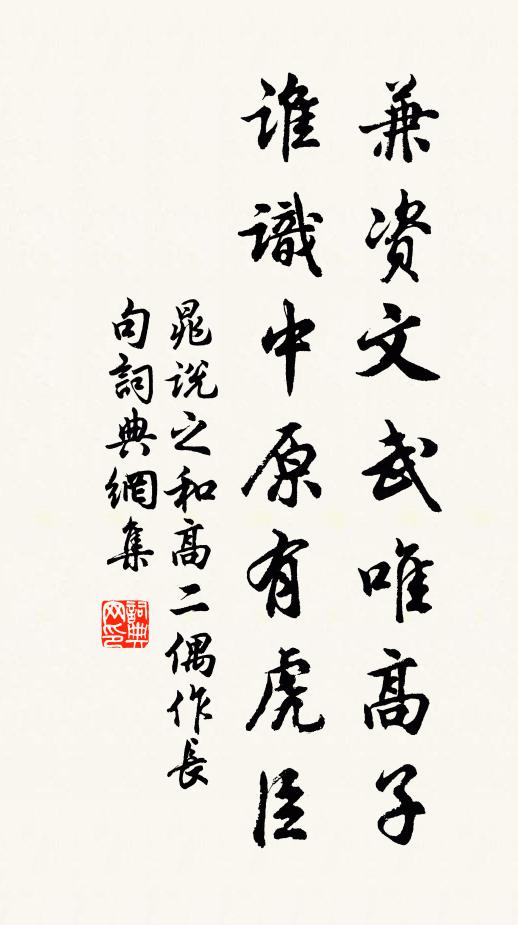 兼资文武唯高子
谁識中原有虎臣
晁说之和高二偶作長
句詞典網集
詞典网印